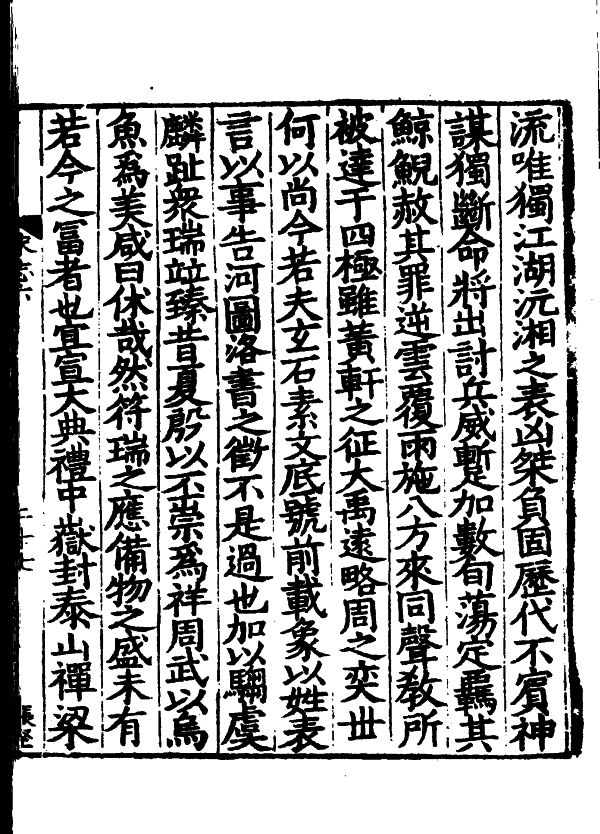 流唯獨江湖沅湘之表凶桀負固歷代不賓神
謀獨斷命將出討兵威蹔加數旬蕩定羈其
鯨鯢赦其罪逆雲覆雨施八方來同聲敎所
被達于四極雖黃軒之征大禹遠略周之奕丗
何以尚今若夫玄石素文底號前載象以姓表
言以事告河圖洛書之徵不是過也加以騶虞
麟趾衆瑞竝臻昔夏殷以丕崇爲祥周武以烏
魚爲美咸曰休哉然符瑞之應備物之盛未有
若今之富者也宜宣大典禮中嶽封泰山禪梁
二十七